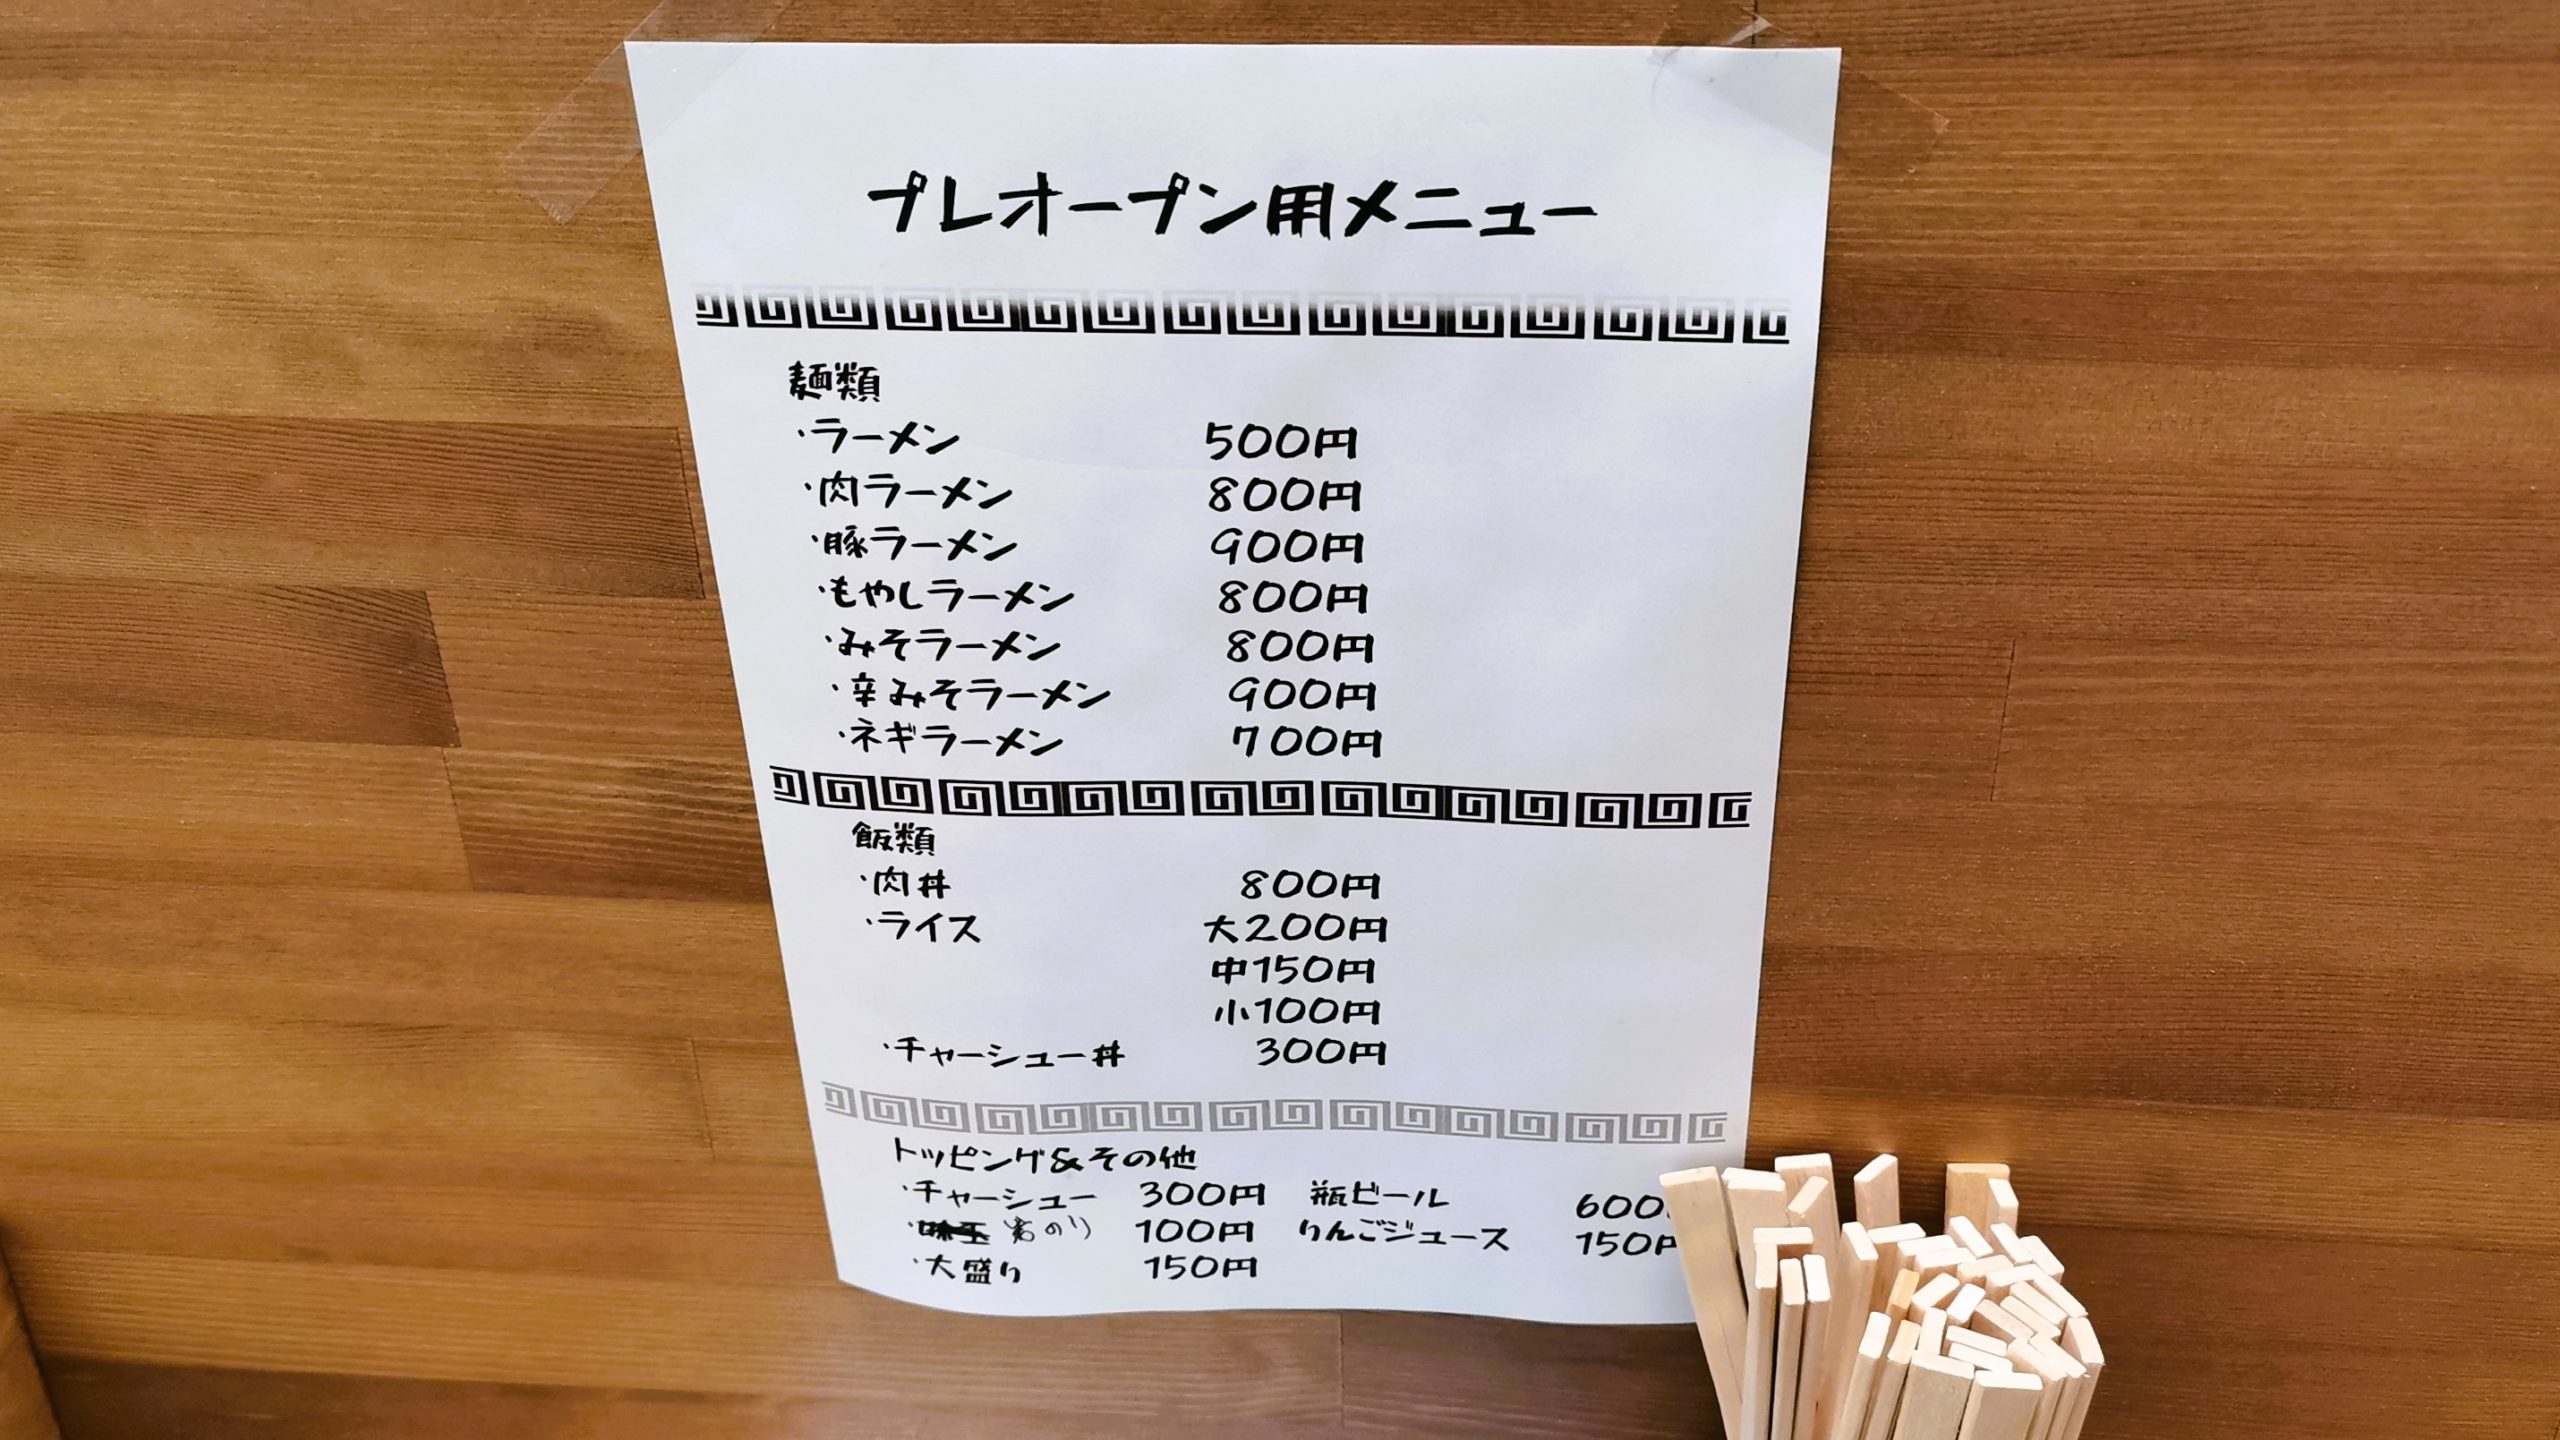 プレオープン用メニュー
麺類
・ラーメン 500円
・肉ラーメン 800円
・豚ラーメン 900円
・もやしラーメン 800円
・みそラーメン 800円
・辛みそラーメン 900円
・ネギラーメン 700円
飯類
・肉丼 800円
・ライス 大200円
中150円
小100円
・チャーシュー丼 300円
トッピング&その他
・チャーシュー 300円 瓶ビール 600
・味玉 岩のり 100円 りんごジュース 150円
・大盛り 150円